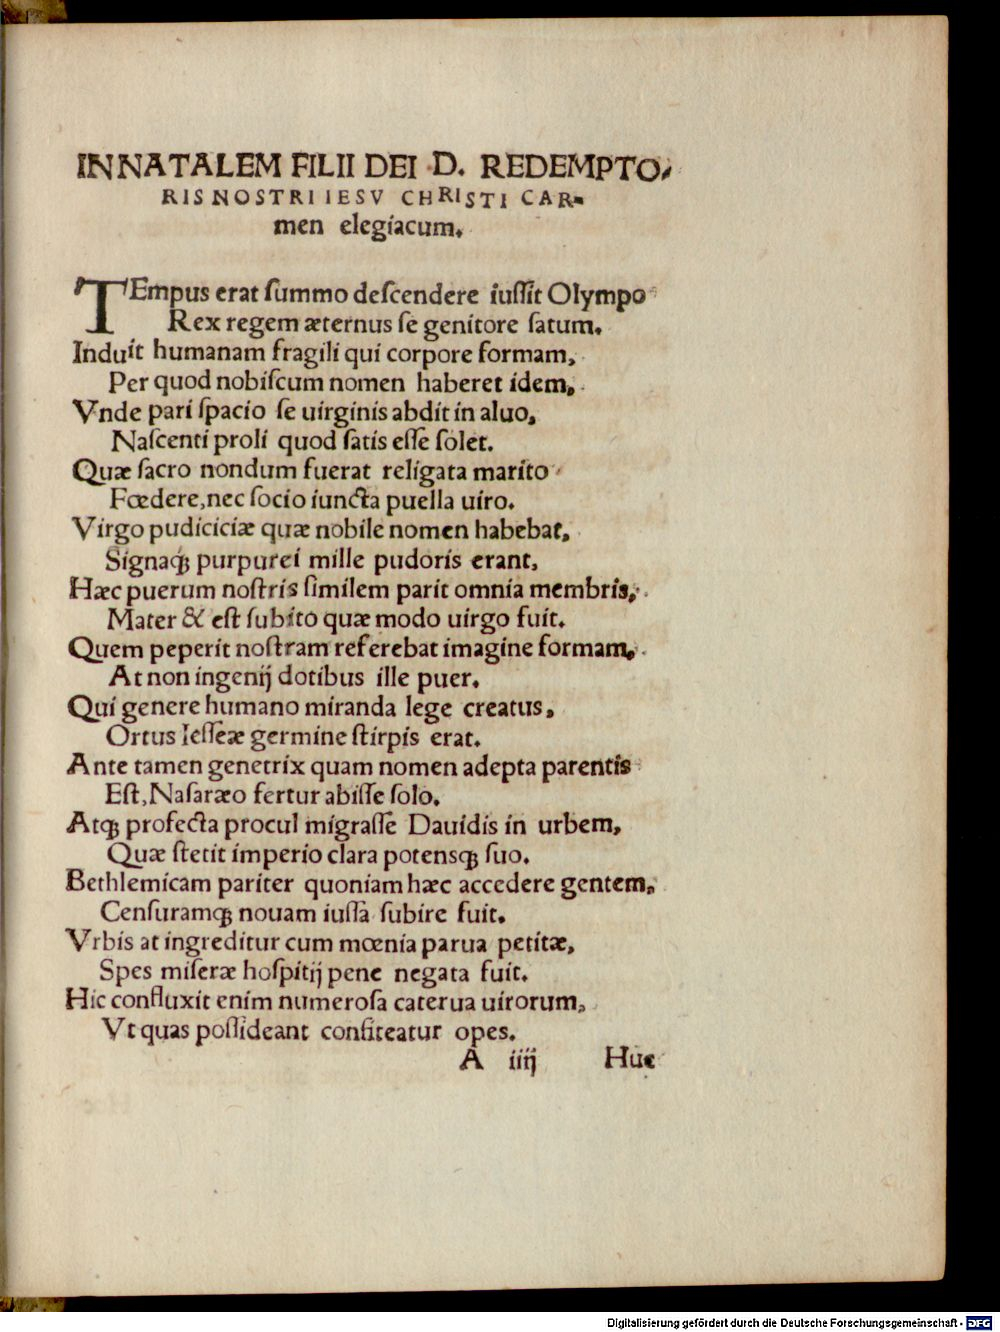 INNATALEM FILII DEI D. REDEMPTO-
RIS NOSTRI IESV CHRISTI CAR-
men elegiacum.
TEmpus erat summo descendere iussit Olympo
Rex regem æternus se genitore satum.
Induit humanam fragili qui corpore formam,
Per quod nobiscum nomen haberet idem,
Vnde pari spacio se uirginis abdit in aluo,
Nascenti proli quod satis esse solet.
Quæ sacro nondum fuerat religata marito
Fœdere, nec socio iuncta puella uiro.
Virgo pudiciciæ quæ nobile nomen habebat,
Signaqꝫ purpurei mille pudoris erant,
Hæc puerum nostris similem parit omnia membris,
Mater & est subito quæ modo uirgo fuit.
Quem peperit nostram referebat imagine formam,
At non ingenij dotibus ille puer.
Qui genere humano miranda lege creatus,
Ortus Iesseæ germine stirpis erat.
Ante tamen genetrix quam nomen adepta parentis
Est, Nasaræo fertur abisse solo.
Atqꝫ profecta procul migrasse Dauidis in urbem,
Quæ stetit imperio clara potensqꝫ suo.
Bethlemicam pariter quoniam hæc accedere gentem,
Censuramqꝫ nouam iussa subire fuit.
Vrbis at ingreditur cum mœnia parua petitæ,
Spes miseræ hospitij pene negata fuit.
Hic confluxit enim numerosa caterua uirorum,
Vt quas possideant confiteatur opes.
A iiij Huc
Digitalisierung gefördert durch die Deutsche Forschungsgemeinschaft - DFG